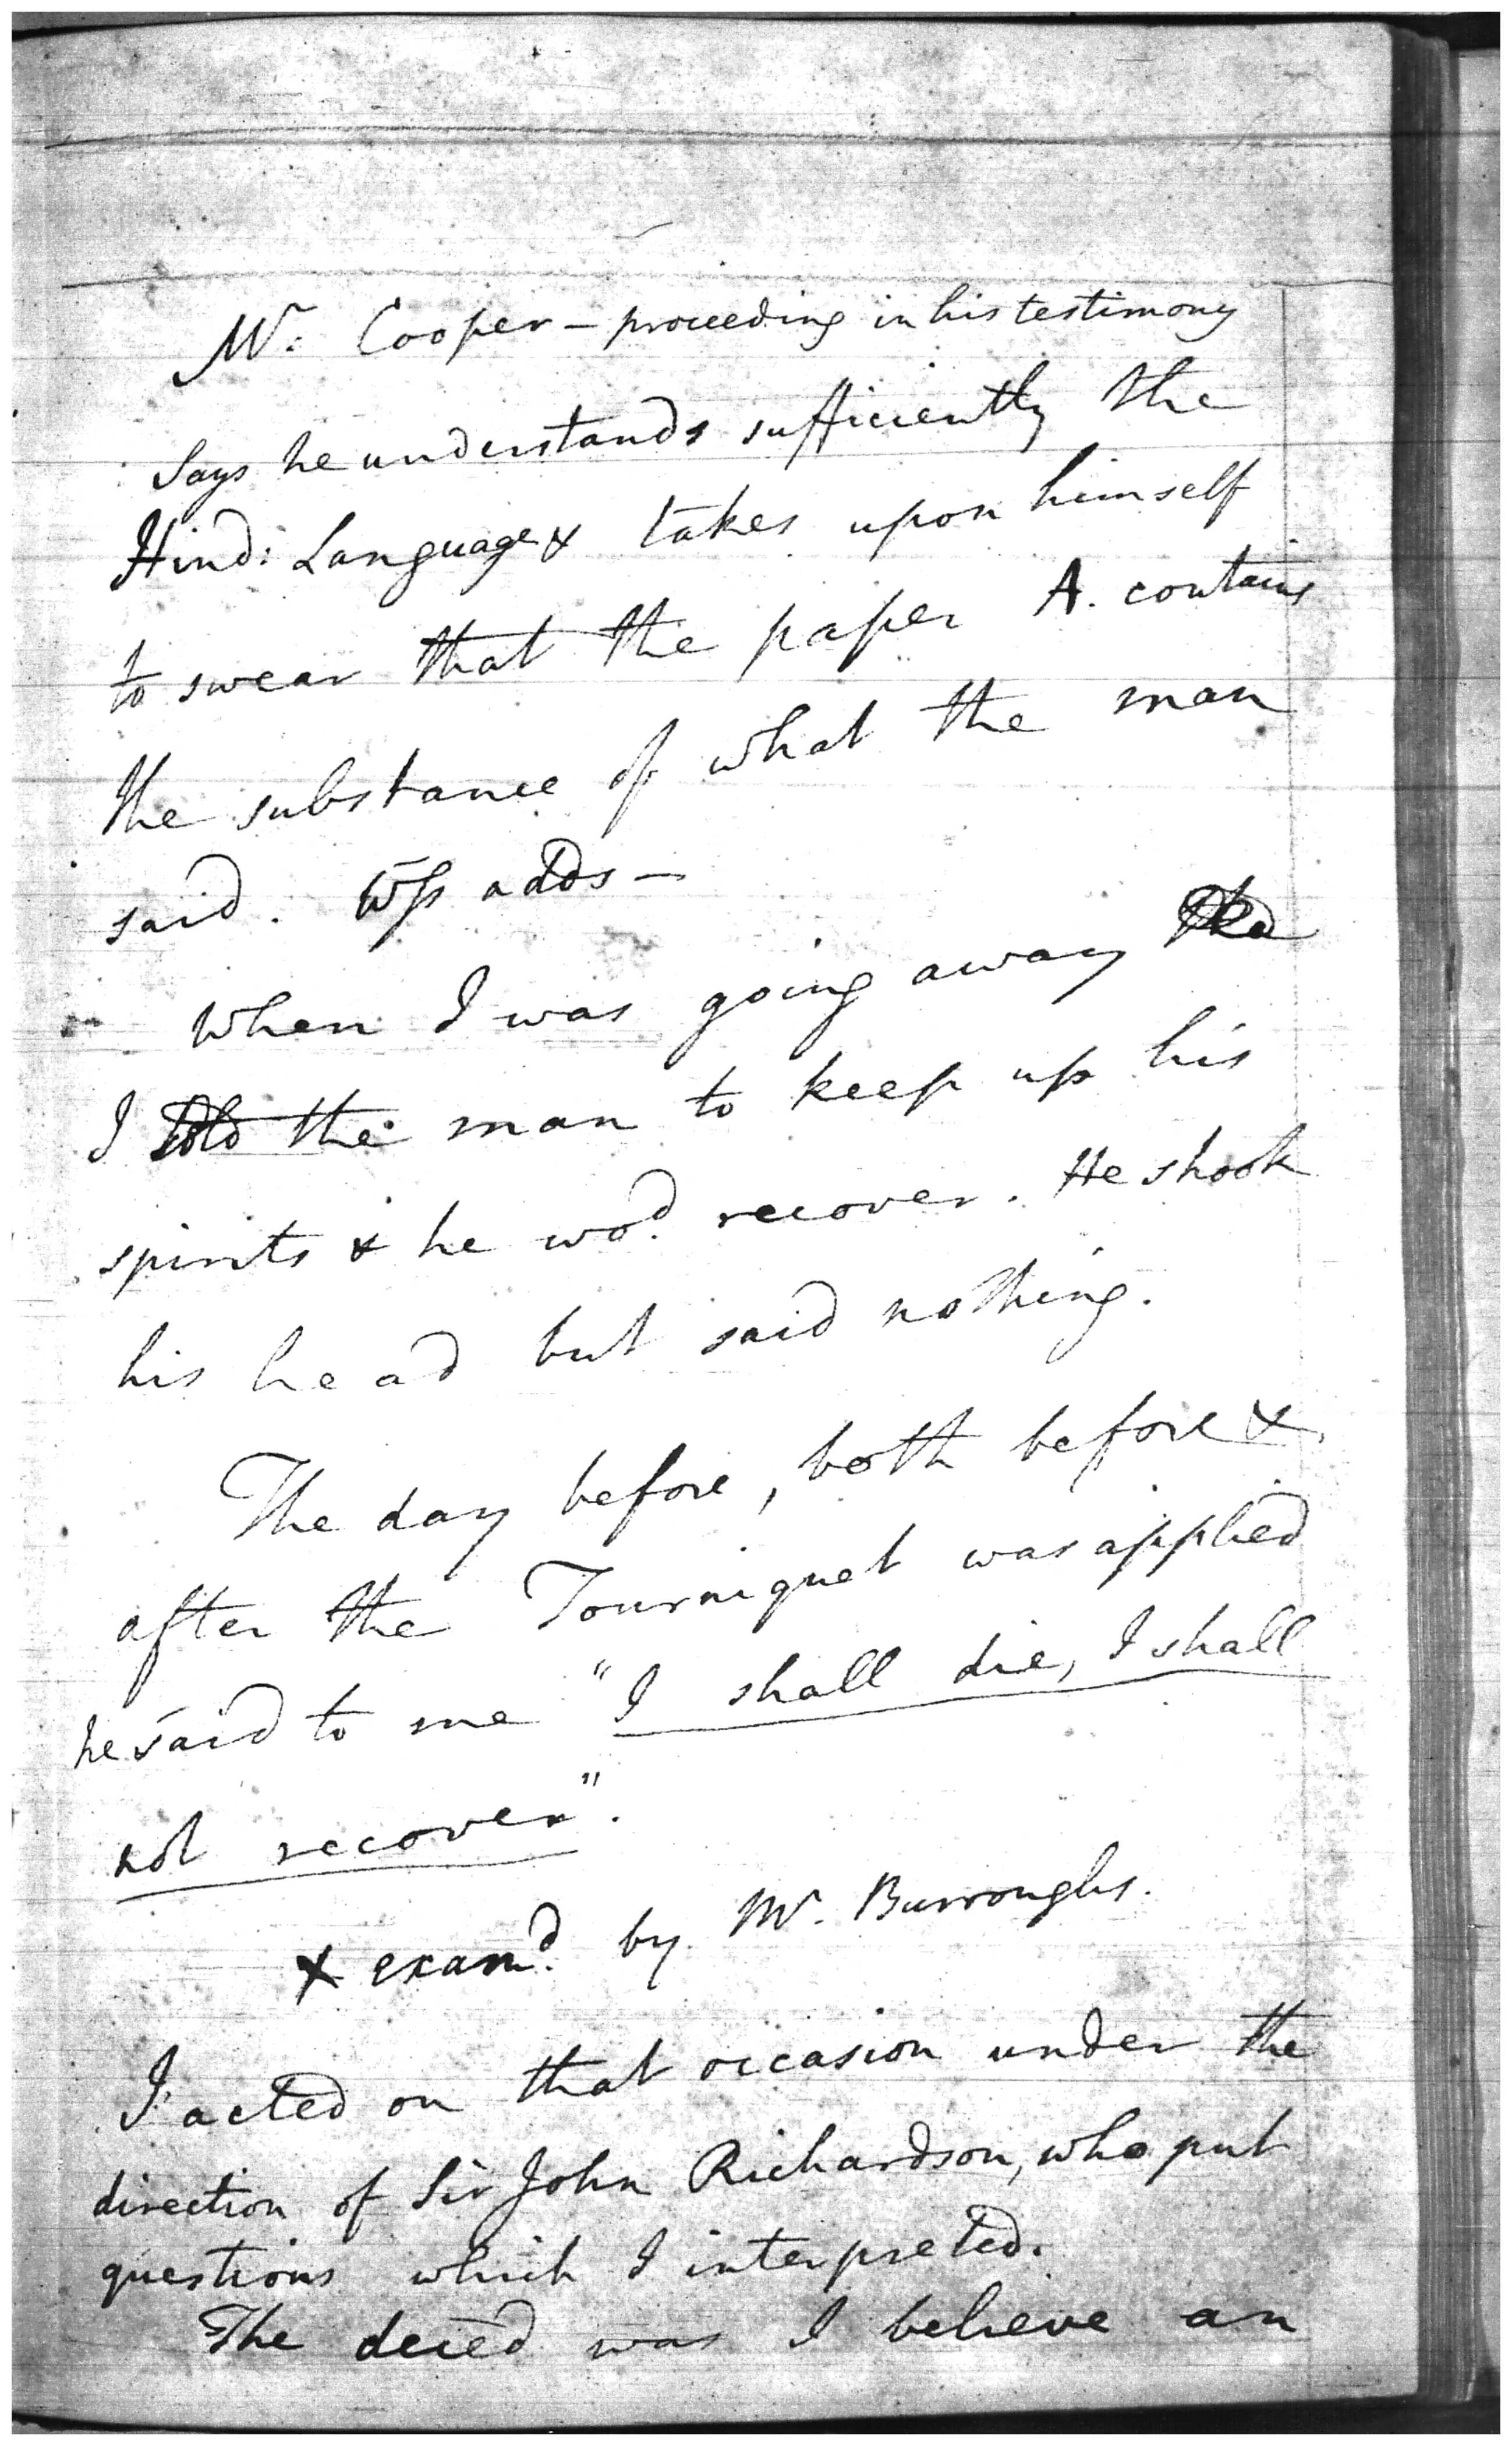 Mr. Cooper – proceeding in his testimony
Says he understands sufficiently the
Hind: Language & takes upon himself
to swear that the paper A. contains
the substance of what the man
said. Wss adds –
When I was going away
I told the man to keep up his
spirits & he wod. recover. He shook
his head but said nothing.
The day before, both before &
after the Tourniquet was applied
he said to me "I shall die, I shall
not recover".
X examd. by Mr. Burroughs.
I acted on that occasion under the
direction of Sir John Richardson, who put
questions which I interpreted.
The deced was I believe an